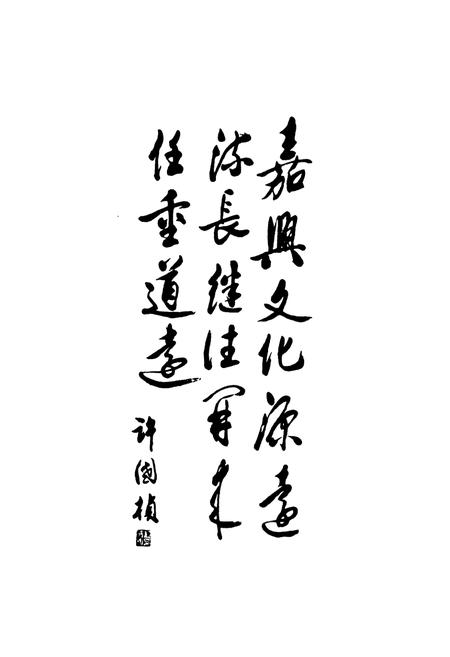 嘉興文化源遠
流長继往開来
任重道遠
许國楨